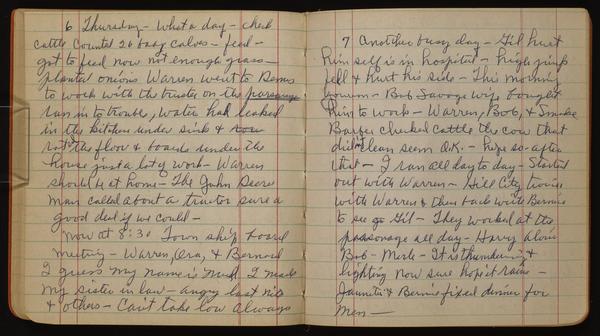 6 Thursday - What a day - check
cattle Counted 26 baby calves - feed -
got to feed now not enough grass -
planted onions Warren went to Bemis
to work with the trustee on the parsonage
run in to trouble, water had leaked
in the kitchen under sink &
rot the floor & boards under the
house just a lot of work - Warren
should be at home - The John Deere
man called about a tractor sure a
good deal if we could -
Now at 8:30 Town ship board
meeting - Warren, Ora, & Bernard
I guess my name is Mud. I made
my sister in law - angry last nite
& others - Can't take low always
7 Another busy day - Gil hurt
him self is in hospital - high jump
fell & hurt his side - This morning
Bob Savage wife bought
him to work - Warren, Bob, & Smoke
Barger checked cattle the cow that
didn't clean seem O.K. - hope so - after
that - I ran all day to day - Started
out with Warren - Hill City twice
with Warren & then back with Bernie
to see Gil - They worked at the
parsonage all day - Harry Alvin
Bob - Merle - It is thundering &
lighting now sure hope it rains -
Juanita & Bernie fixed dinner for
men -